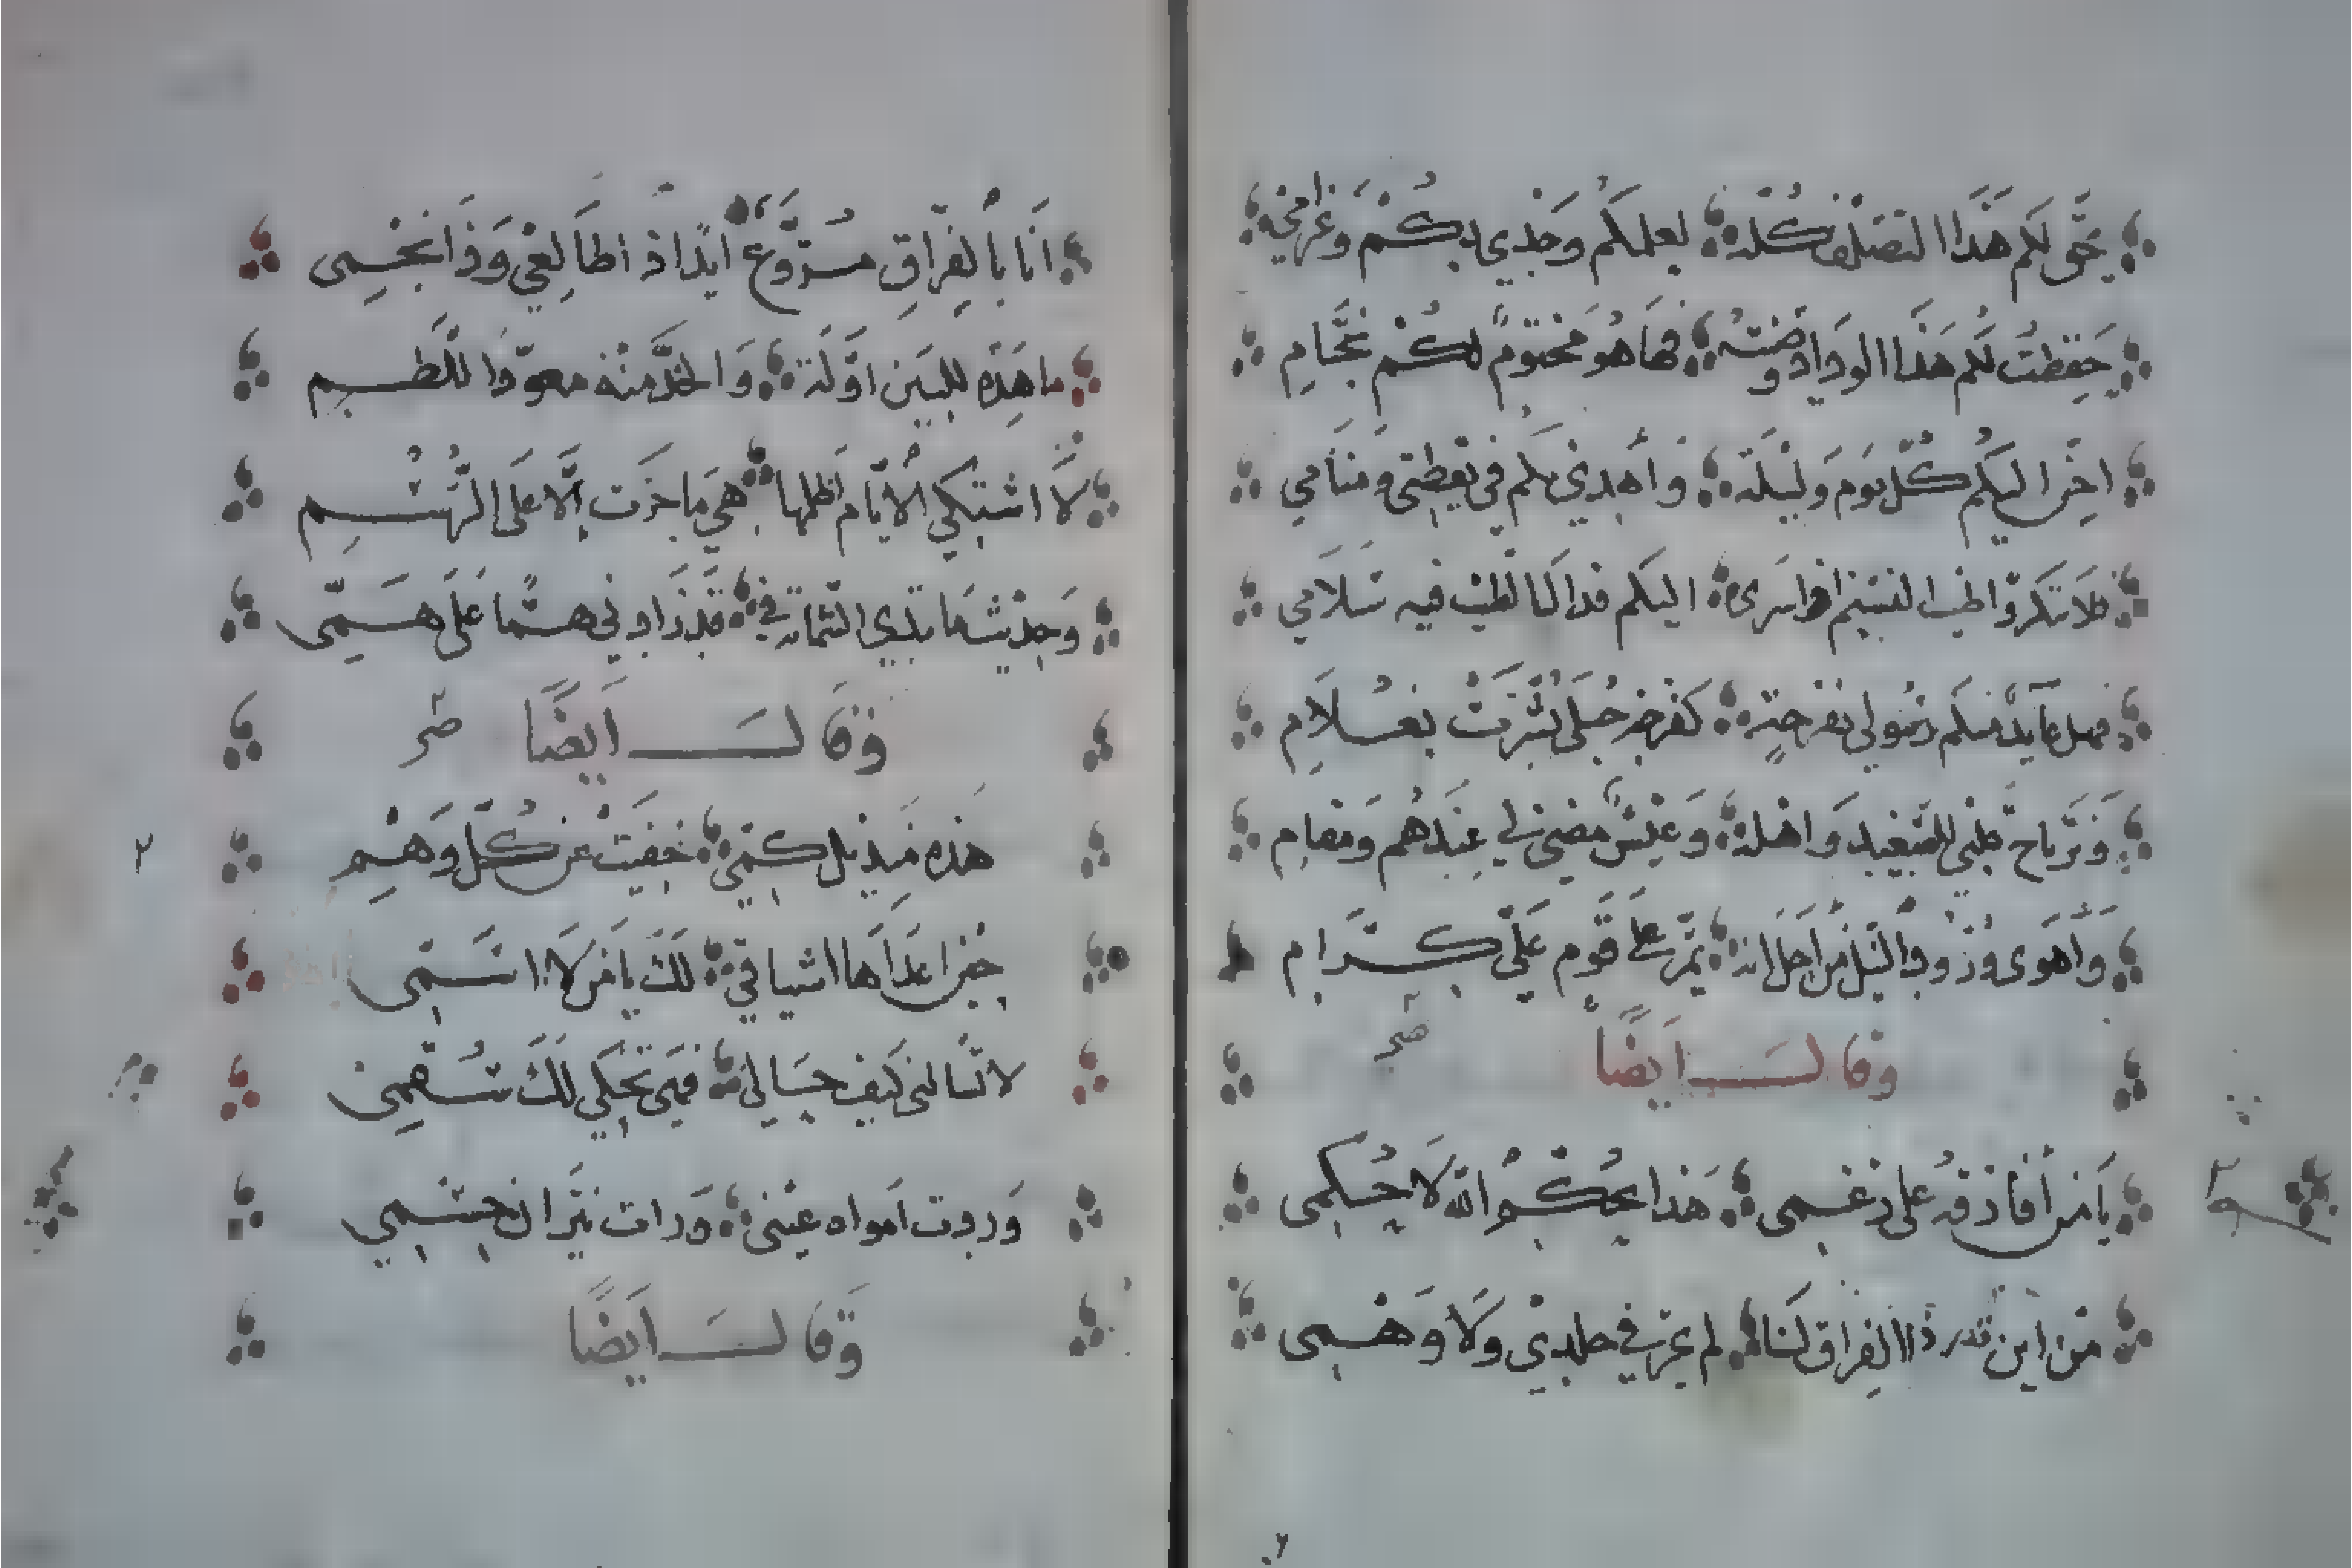 بحقي لكم هذا التصلف كله لعلمكم وجدي بكم وغرامي
حفظت لكم هذا الوداد وصنته فها هو مختوم لكم بختام
احن اليكم كل يوم وليلة وأهذي بكم في يقظتي ومنامي
فلا تنكروا طيب النسيم اذا سرى اليكم فذاك الطيب فيه سلامي
فهل عايد منكم رسولي بفرحة كفرحة حبلى بشرت بغلام
وترتاح قلبي للصعيد واهله وعيش مضى لي عندهم ومقام
وأهوى ورود النيل من اجل انه يمر على قوم علي كرام
وقال ايضا
يا من أفارقه على رغمي هذا بحكم الله لا حكمي
من اين الفراق لنا لم يجر في خلدي ولا وهمي
انا بالفراق مروع ابدا ذا طالعي وذا نجمي
ما هذه للبين اولة والخد منه معود اللطم
لا اشتكي الايام اظلمها هي ما جرت إلا على الرسم
وحديث ما تبدي الشماتة في قد زادني هما على همي
وقال ايضا
هذه منديل كمي خفيت عن كل وهم
حين اعداها اشتياقي لك يا من لا اسمي
لا تسالني كيف حالي فهي تحكي لك سقمي
وروت امواه عيني ورات نيران جسمي
وقال ايضا